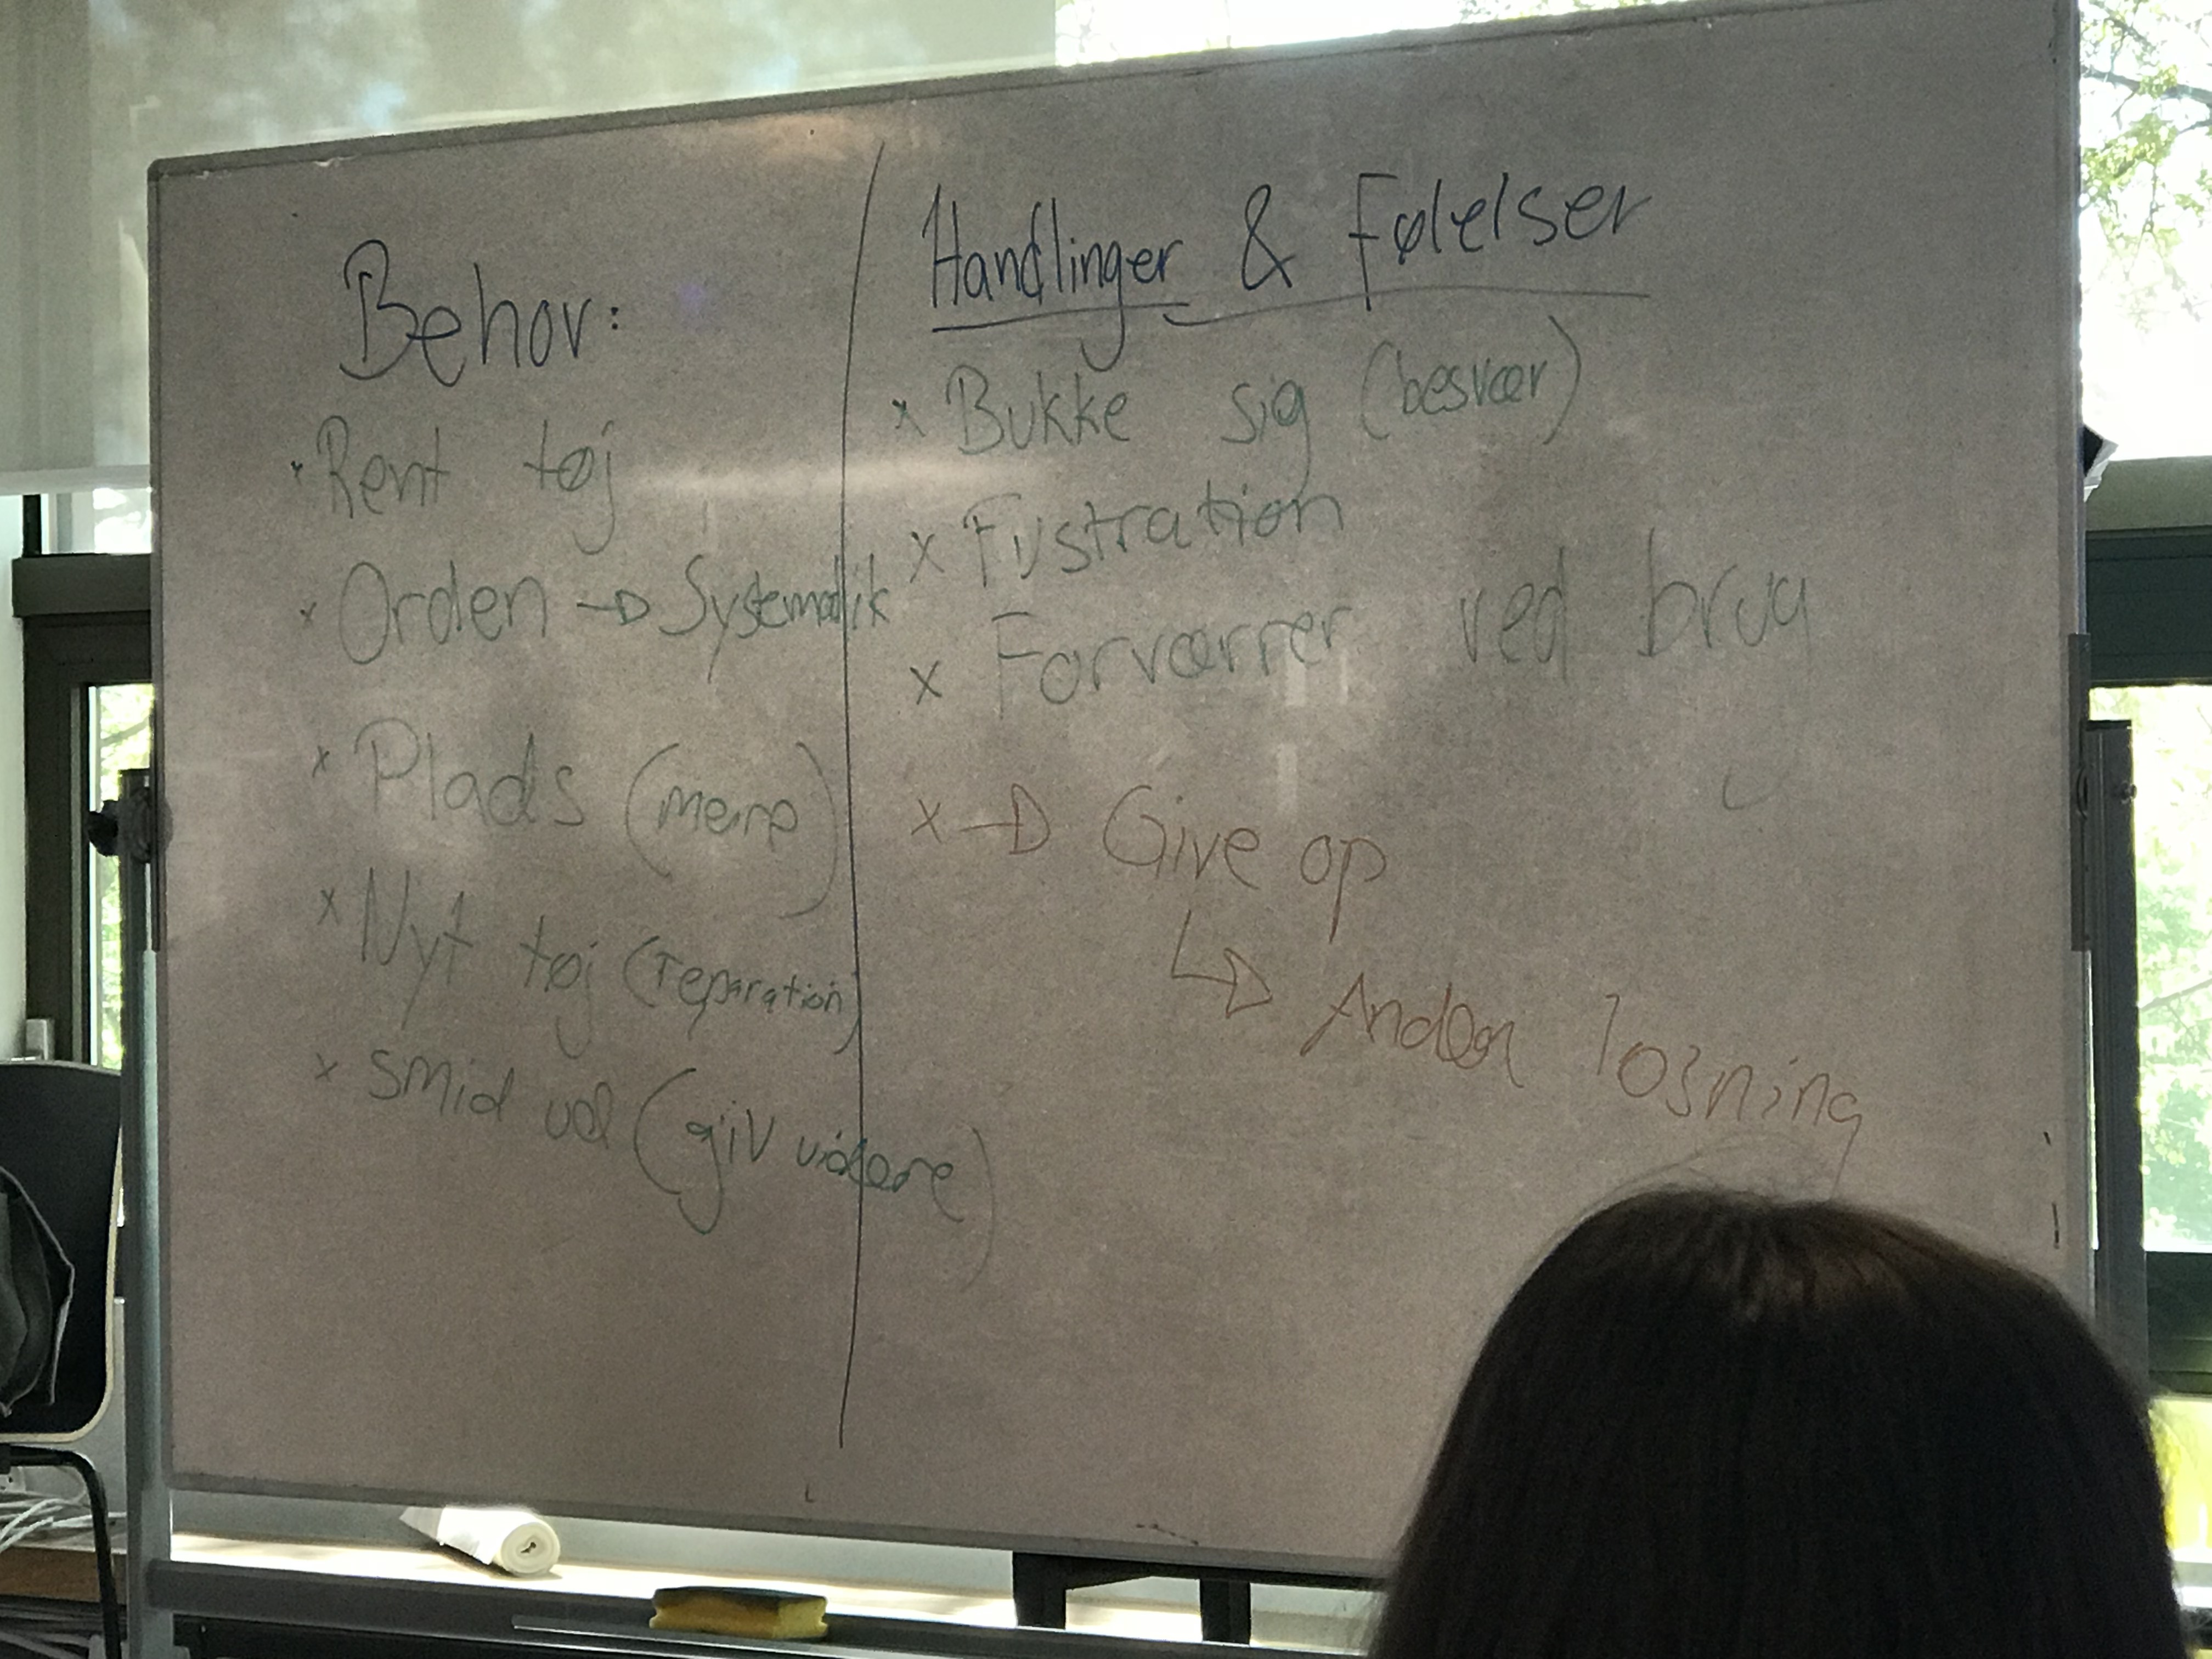 Behov:
· Rent tøj
x Orden → Systematik
x Plads (mere)
x Nyt tøj (reparation)
x Smid ud (giv videre)
Handlinger & Følelser
x Bukke sig (besvær)
x Fustration
x Forværrer ved brug
x → Give op
↳ Anden løsning